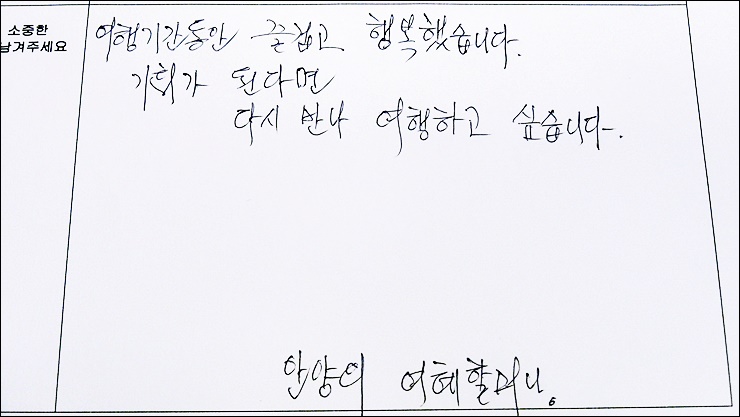 소중한
남겨주세요
여행기간동안 즐겁고 행복했습니다.
기회가 된다면
다시 만나 여행하고 싶습니다.
안양의 여혜할머니.